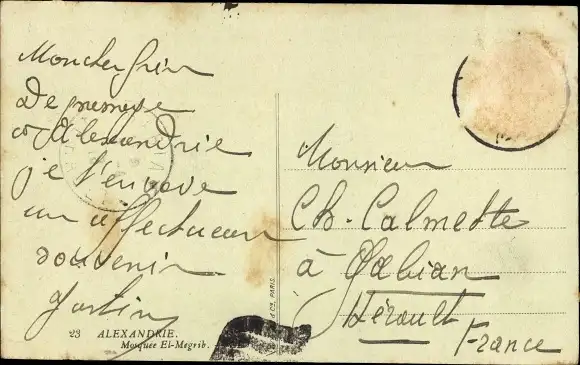 Mon cher frère
De passage
à Alexandrie
je t'envoie
un affectueux
souvenir
Justin
23 ALEXANDRIE.
Mosquée El-Megrib.
& Cº, PARIS.
Monsieur
Ch. Calmette
à Gabian
Hérault
France